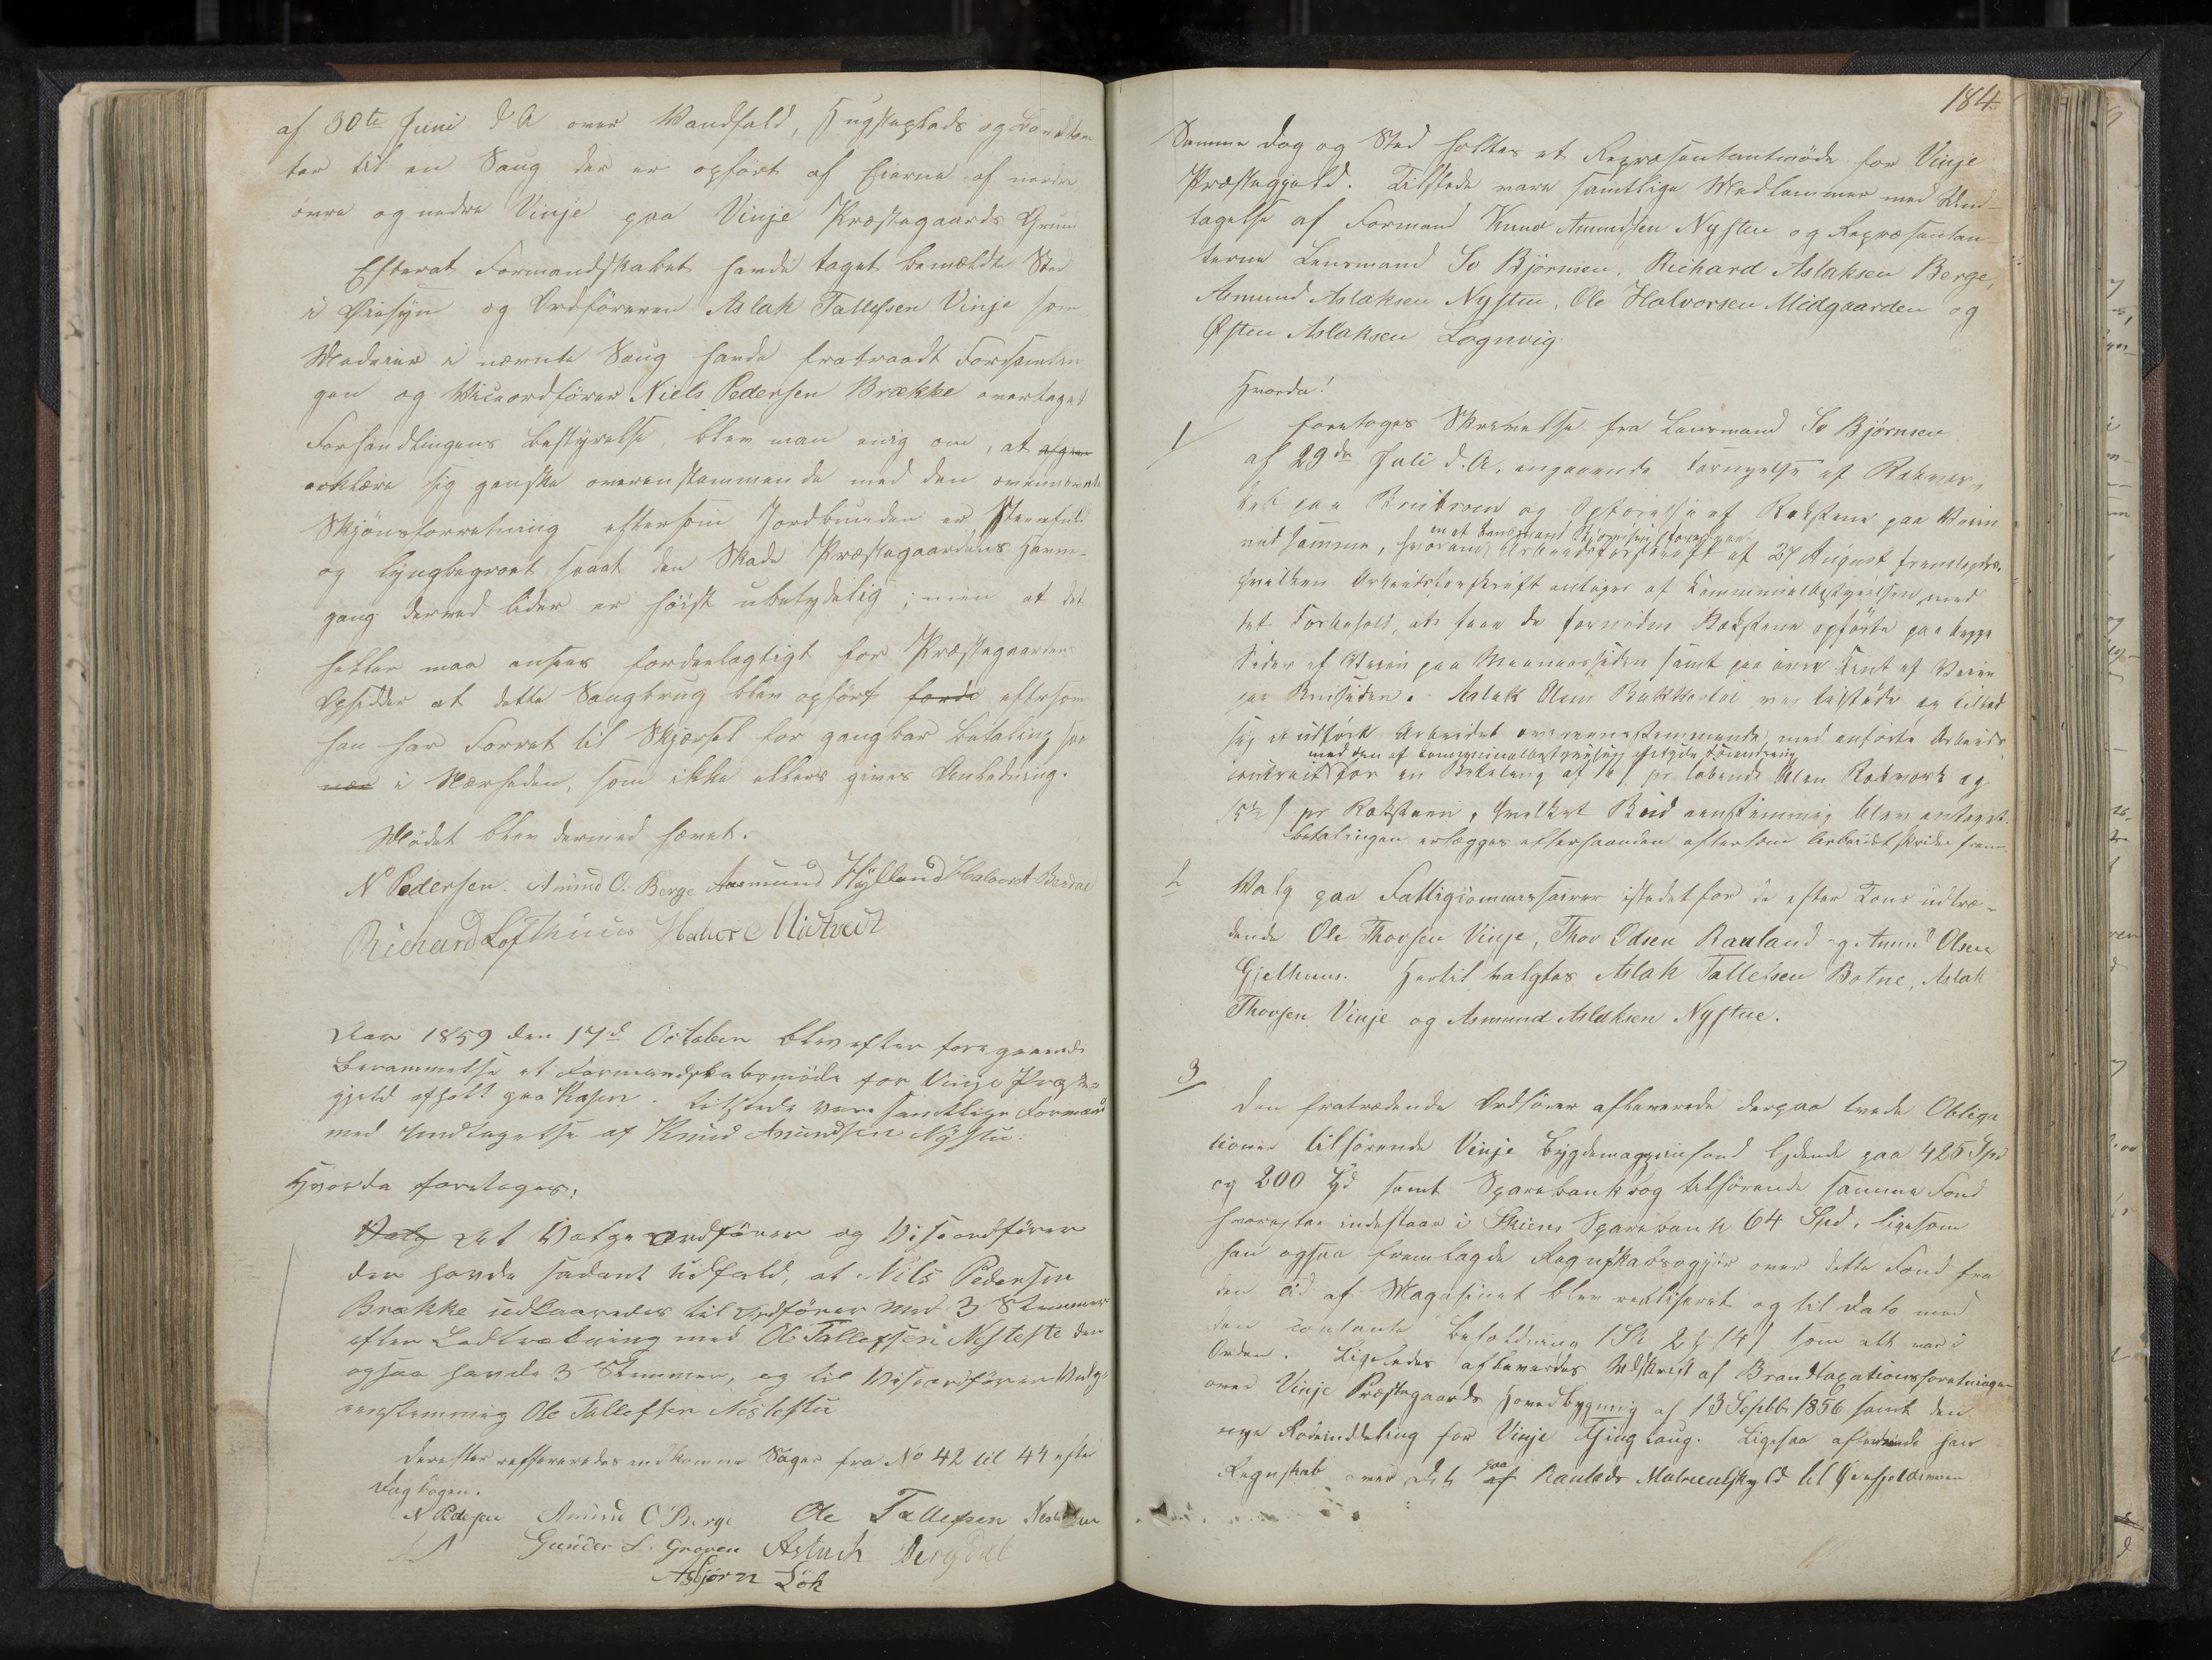 af 30te Juni d. A over Vandfald, Hugsteplads og Damtom
ter til en Saug der er opført af Eierne af nordre
øvre og nedre Vinje paa Vinje Præstegaards Grund
Efterat Formandskabet havde taget bemældte Sted
i Øiesyn og Ordføreren Aslak Tallefsen Vinje som
Medeier i nævnte Saug havde fratraadt Forsamlin
gen og Viceordfører Niels Pedersen Brække overtaget
Forhandlingens Bestyrelse, blev man enig om, at
erklære sig ganske overenstemmende med den ovennævnte
Skjønsforretning eftersom Jordbunden er Steenfuld
og lyngbegroet saaat den Skade Præstegaardens Havne-
gang derved lider er høist ubetydelig; men at det
heller maa ansees fordeelagtigt for Præstegaardens
Opsidder at dette Saugbrug blev opført eftersom
han har Forret til Skjørsel for gangbar Betaling saa
nær i Nærheden, som ikke ellers gives Anledning.
Mødet blev dermed hævet.
N Pedersen. Amund O. Berge Aasmund Hylland Halvord Berdal
Richard Lofthuus Halvor Midtveit
Aar 1859 den 17d October blev efter foregaaende
Berammelse et Formandskabsmøde for Vinje Præste-
gjeld afholt paa Kasen. Tilstede vare samtlige Formænd
med Undtagelse af Knud Amundsen Nystu.
Hvorda foretoges:
Valg At Vælge Ordfører og Viseordfører
der havde sadant Udfald, at Nils Pedersen
Brække udkaaredes til Ordfører med 3 Stemmer
efter Lodtrækning med Ole Tallefsen Nesteste der
ogsaa havde 3 Stemmer, og til Viseordfører Valg-
eenstemmig Ole Tallefsen Nestestu
Derefter reffereredes indkomne Sager fra No 42 til 44 efter
Dagbogen.
N Pedersen Amund O Berge Ole Tallefsen Nestestue
Gunder L. Groven Aslach Bergdal
Asbjørn Løk
184.
Samme Dag og Sted holtes et Repræsentantmøde for Vinje
Præstegjeld. Tilstede vare samtlige Medlemmer med Und-
tagelse af Formand Knud Amundsen Nystue og Repræsentan-
terne Lensmand So Bjørnsen, Richard Aslaksen Berge,
Asmund Aslaksen Nystue, Ole Halvorsen Midgaarden og
Østen Aslaksen Lognvig.
Hvorda!
1/ foretoges Skrivelse fra Lensmand So Bjørnsen
af 29de Juli d. A. angaaende Fornyelse af Rækvær-
ket paa Bruibroen og Opførelse af Rækstene paa Veien
ved samme, hvorom en af Lensmand Bjørnsen Arbeidsforskrift af 27 August fremlagdes,
hvilken Arbeidsforskrift antages af Kommunalbestyrelsen med
det Forbehold, at faae de fornødne Rækstene opførte paa begge
Sider af Veien paa Maanaassiden samt paa øvre Kant af Veien
paa Bruisiden. Aslak Olsen Bakkestøl var tilstede og tilbød
sig at udføre Arbeidet overeensstemmende med anførte Arbeids
contract med den af Kommunalbestyrelsen Forandring for en Betaling af pr løbende Alen Rækværk og
pr Ræksteen, hvilket Bud eenstemmig blev antaget.
Betalingen erlægges efterhaanden eftersom Arbeidet skrider frem.
2 Valg paa Fattigcommissairer istedetfor de efter Tour udtræ-
dende Ole Thorsen Vinje, Thor Odsen Rauland og Amund Olsen
Gjelhuus. Hertil valgtes Aslak Tallefsen Botne, Aslak
Thorsen Vinje og Asmund Aslaksen Nystue.
3/ Den fratrædende Ordfører afleverede derpaa tvede Obliga
tioner tilhørende Vinje Bygdemagasinfond lydende paa 425 Spd
og 200 Spd samt Sparebanksbog tilhørende samme Fond
hvorefter indestaar i Skiens Sparebank 64 Spd, ligesom
han ogsaa fremlagde Regnskabsopgjør over dette Fond fra
den Tid af Magasinet blev realiseret og til Dato med
den contante Beholdning som alt var i
Orden. Ligeledes afleveredes Udskrift af Brandtaxationsforretningen
over Vinje Præstegaards Hovedbygning af 13 Septbr 1856 samt den
nye Rodeinddeling for Vinje Thinglaug. Ligesaa afleverede han
Regnskab over paa af Raulands Matrieulskyld til Øvrefjeldveien